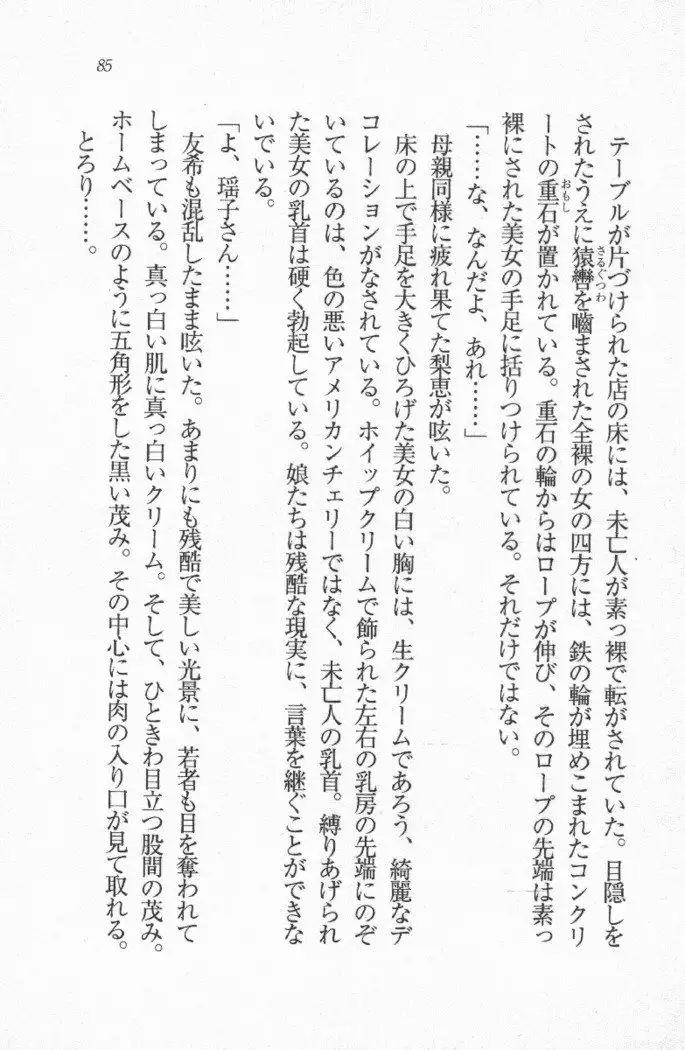 85
テーブルが片づけられた店の床には、未亡人が素っ裸で転がされていた。目隠しを
されたうえに猿轡を嚙まされた全裸の女の四方には、鉄の輪が埋めこまれたコンクリ
ートの重石が置かれている。重石の輪からはロープが伸び、そのロープの先端は素っ
裸にされた美女の手足に括りつけられている。それだけではない。
「……な、なんだよ、あれ……」
母親同様に疲れ果てた梨恵が呟いた。
床の上で手足を大きくひろげた美女の白い胸には、生クリームであろう、綺麗なデ
コレーションがなされている。ホイップクリームで飾られた左右の乳房の先端にのぞ
いているのは、色の悪いアメリカンチェリーではなく、未亡人の乳首。縛りあげられ
た美女の乳首は硬く勃起している。娘たちは残酷な現実に、言葉を継ぐことができな
いでいる。
「よ、瑶子さん……」
友希も混乱したまま呟いた。あまりにも残酷で美しい光景に、若者も目を奪われて
しまっている。真っ白い肌に真っ白いクリーム。そして、ひときわ目立つ股間の茂み。
ホームベースのように五角形をした黒い茂み。その中心には肉の入り口が見て取れる。
とろり……。